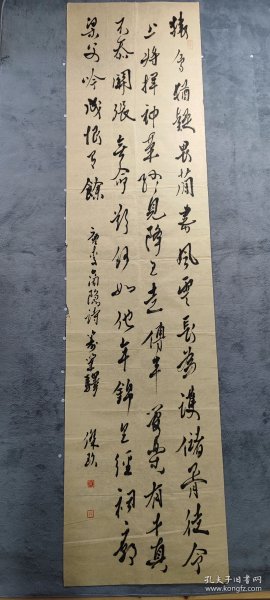 猿鳥猶疑畏簡書風雲長為護儲胥徒令
上將揮神筆終見降王走傳車管樂有才真
不忝關張無命欲何如他年錦里經祠廟
梁父吟成恨有餘
唐李商隱詩籌筆驛
孔夫子旧书网